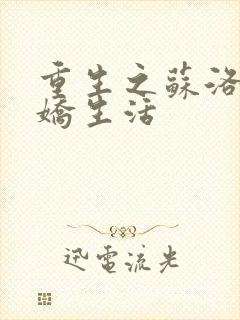 重生之蘇洛
嬌生活
迅電流光